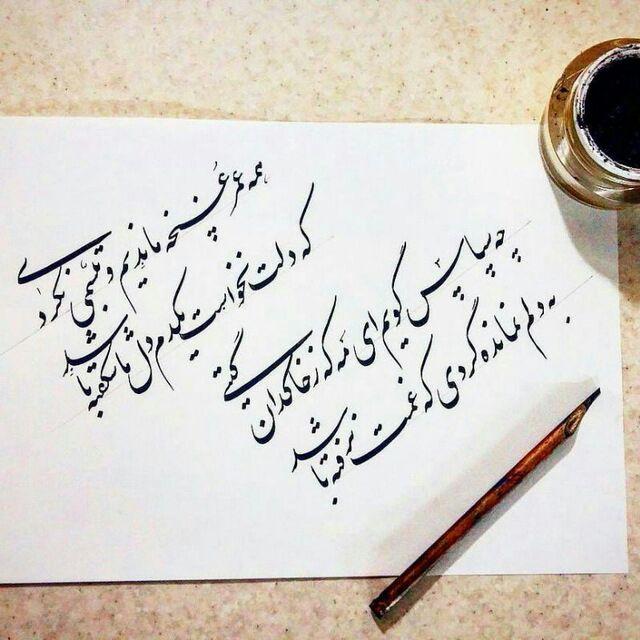 همه عمر غنچه ماندیم و تبسمی نکردی
که دلت نخواست یکدم دل ما شکفته باشد
چه سپاس گویم ای مه که ز خاکدان گیتی
به دلم نمانده گردی که غمت نرفته باشد